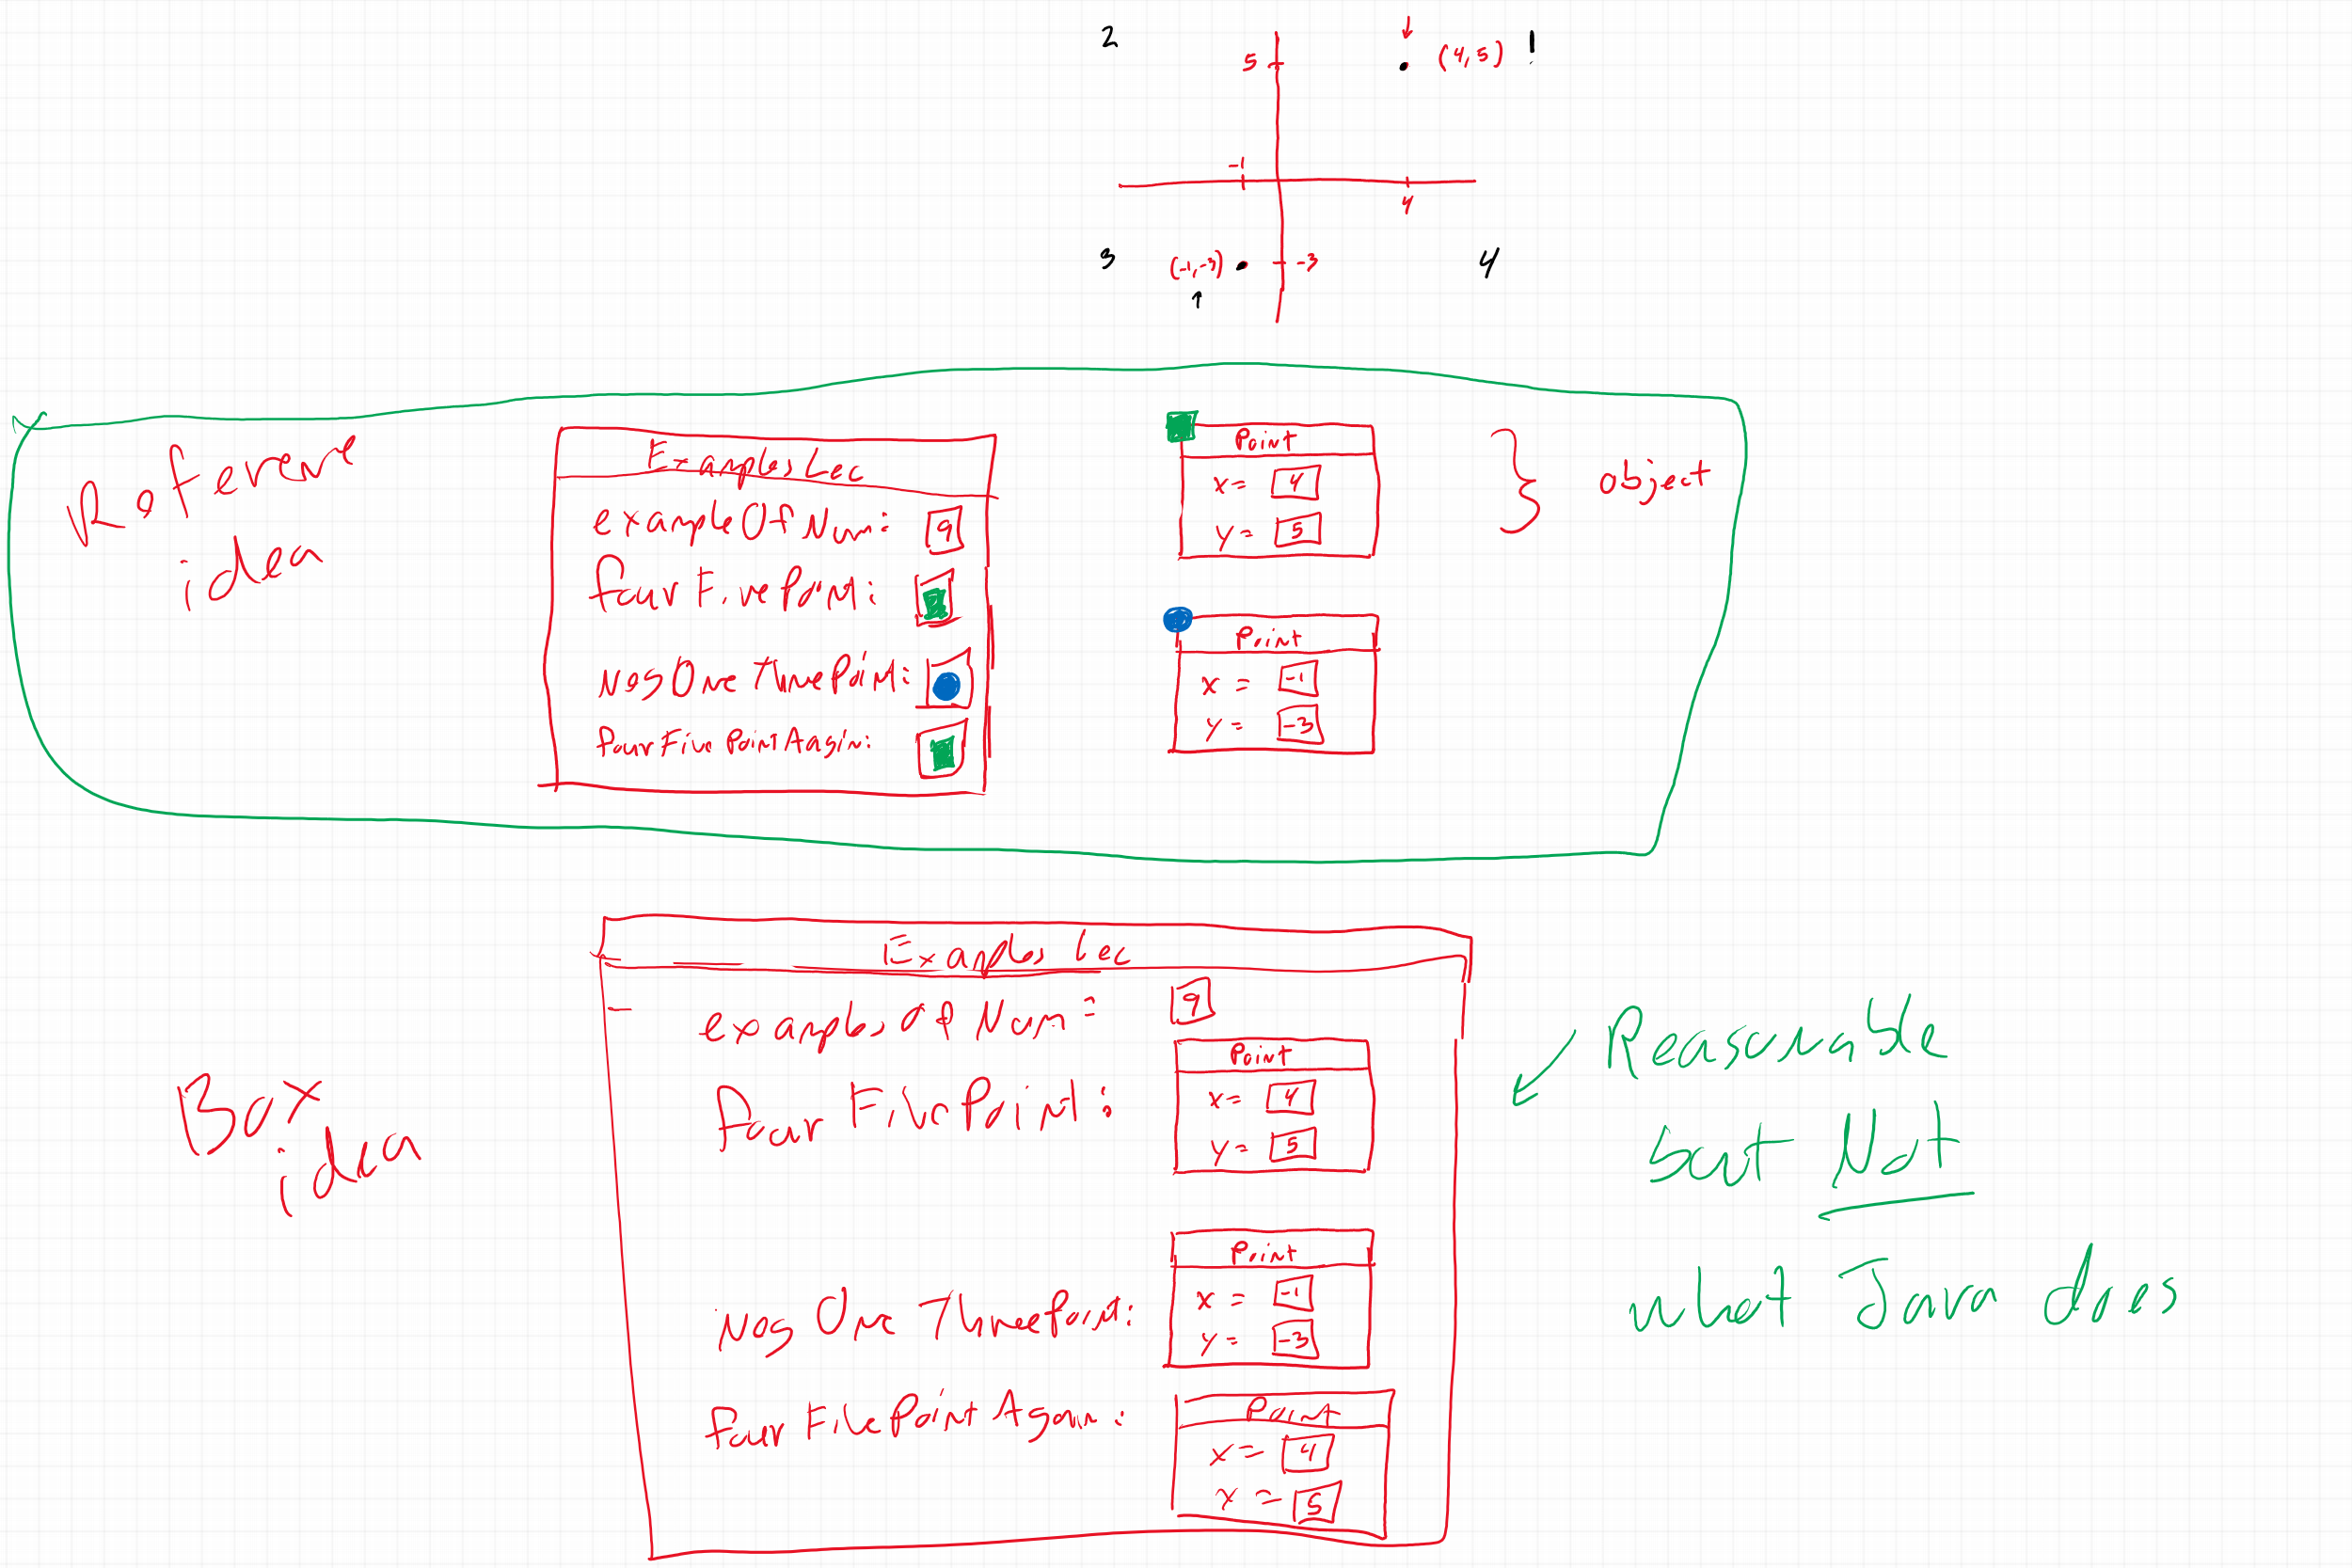 2
5
(4,5)
1
-1
4
3
(-1,-3)
-3
4
Reference
idea
Examples Lec
exampleOfNum:
9
fourFivePoint:
negOneThreePoint:
fourFivePointAagin:
Point
x=
4
y=
5
Point
x =
-1
y=
-3
object
Box
idea
Examples Lec
examplesOfNum=
9
fourFivePoint:
Point
x=
4
y=
5
negOneThreePoint:
Point
x =
-1
y=
-3
fourFivePointAgain:
Point
x =
4
x =
5
Reasonable
but Not
what Java does